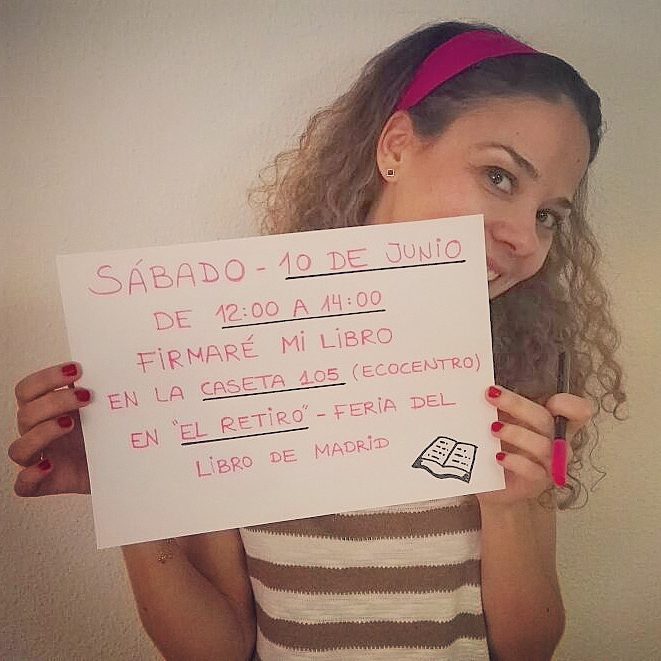 SÁBADO - 10 DE JUNIO
DE 12:00 A 14:00
FIRMARÉ MI LIBRO
EN LA CASETA 105 (ECOCENTRO)
EN "EL RETIRO" - FERIA DEL
LIBRO DE MADRID